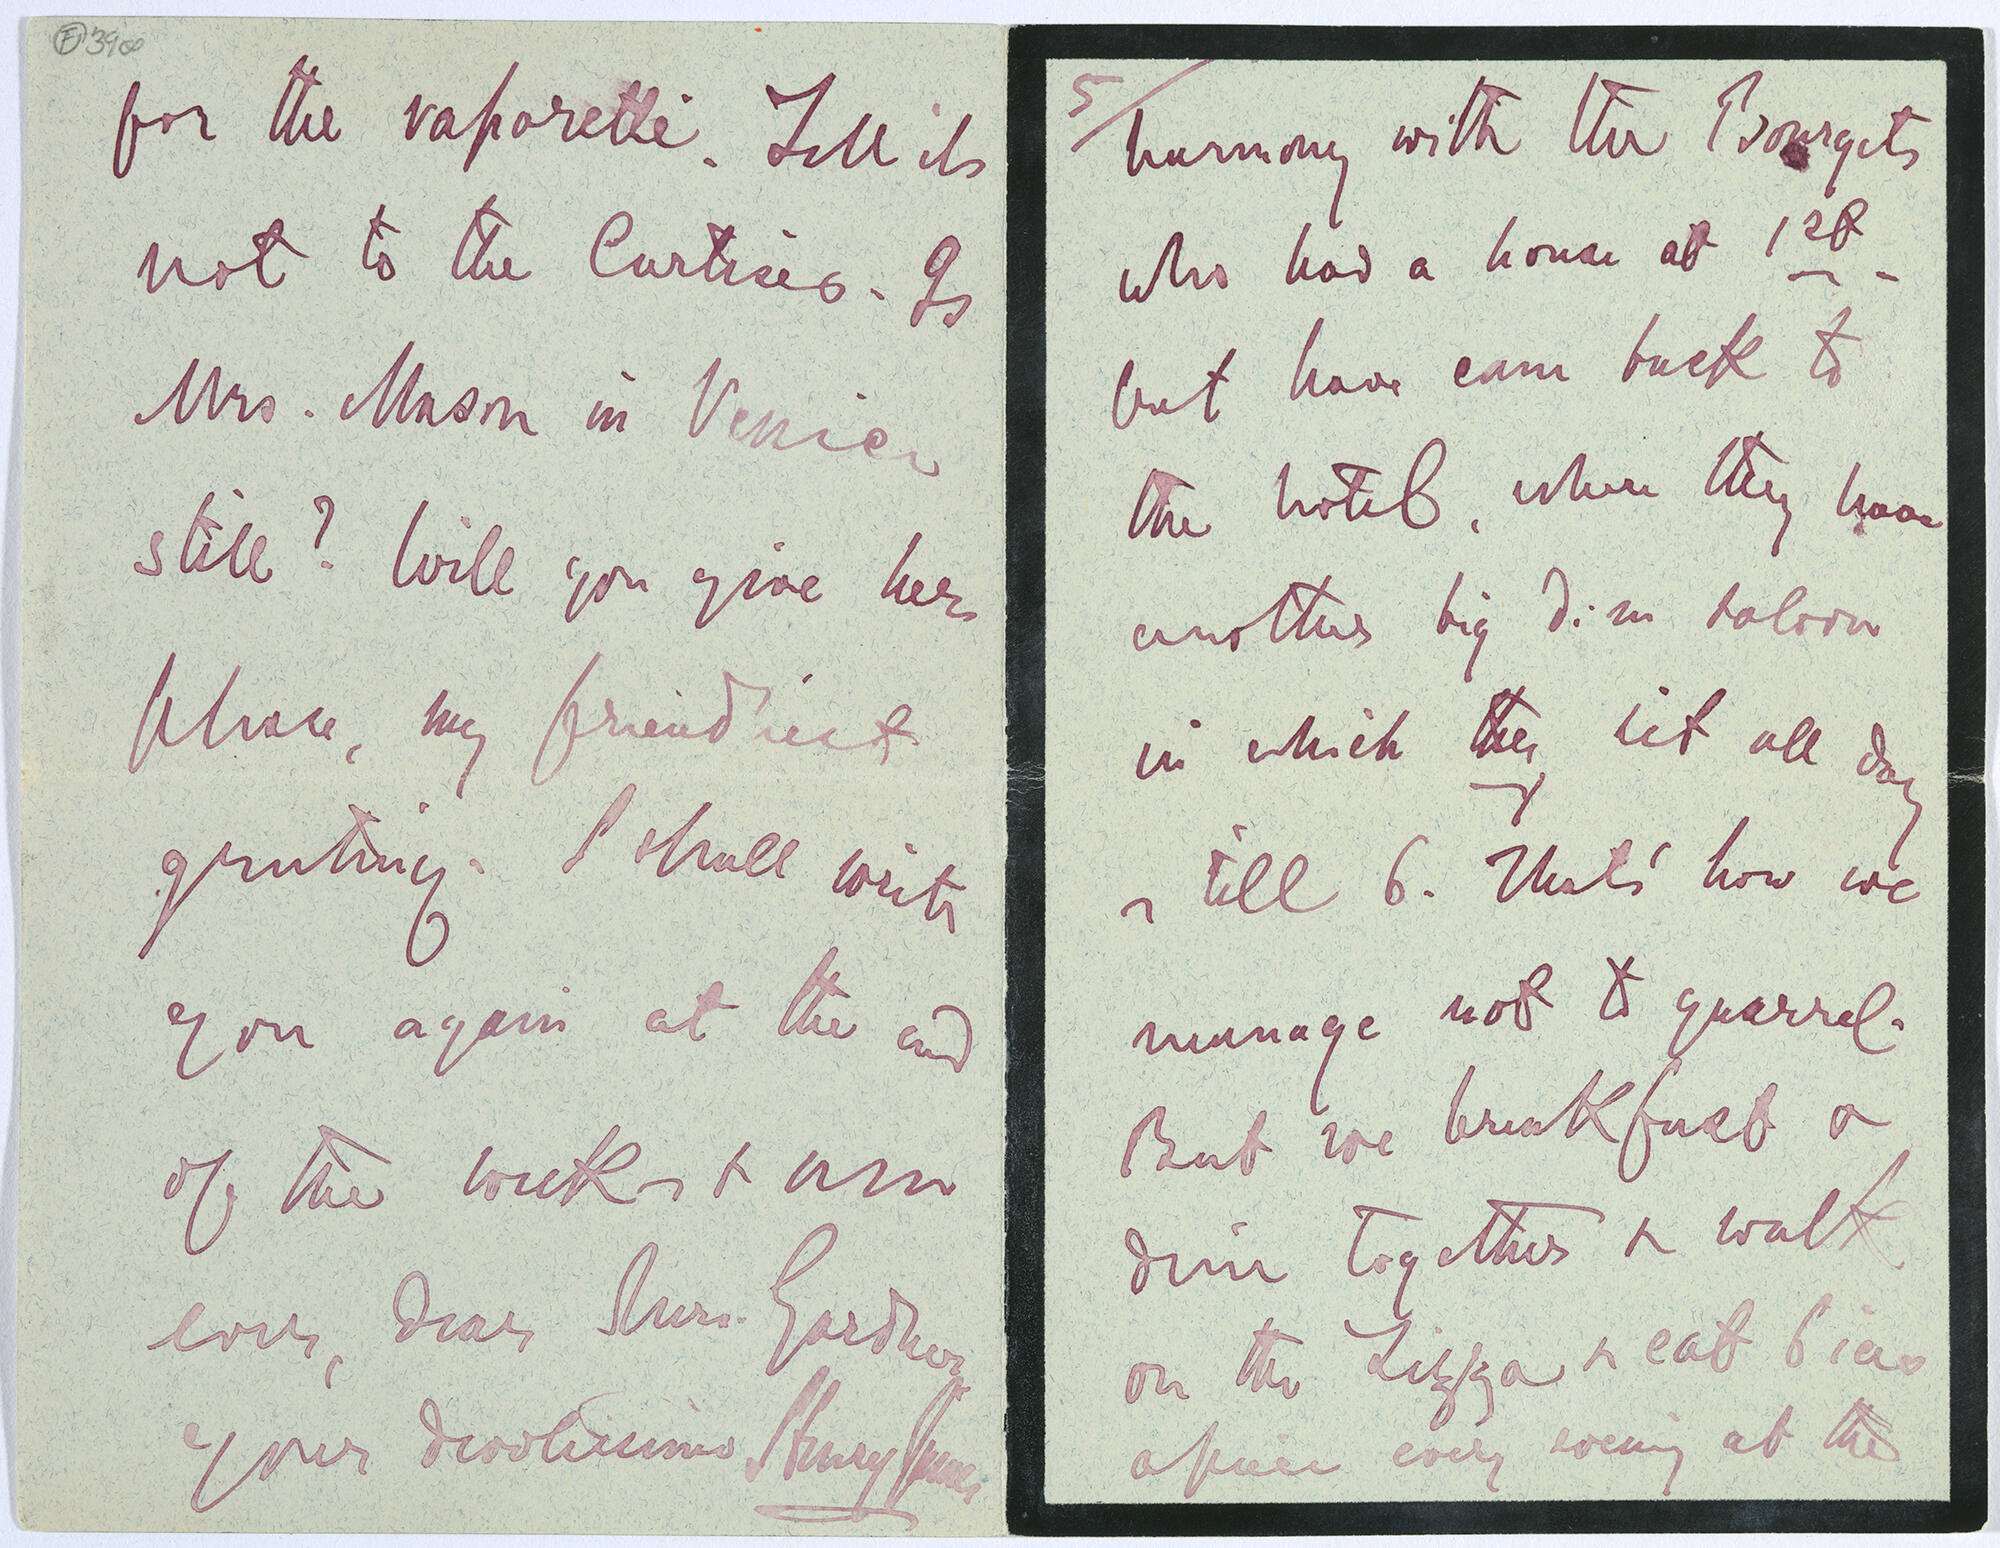 for the vaporetti. Tell it
not to the Curtises. Is
Mrs. Mason in Venice
still? Will you give her,
please, my friendliest
greeting. I shall write
you again at the end
of the week - & am
ever, dear Mrs. Gardner
your devotissimo Henry James
5/
harmony with the Bourgets
who had a house at 1st -
but have come back to
the hotel, where they have
another big dim saloon
in which they sit all day
- till 6. That's how we
manage not to quarrel.
But we breakfast &
dine together & walk
on the Lizza & eat 6 ices
apiece every evening at the